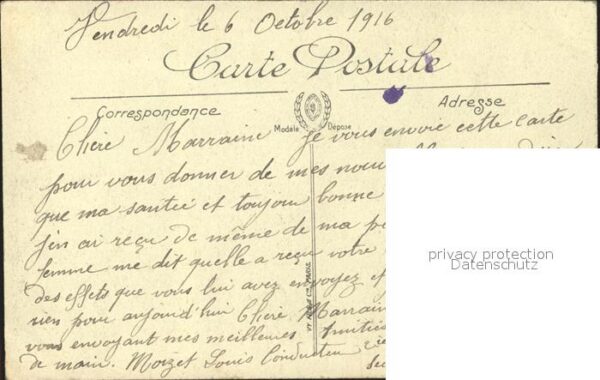 Vendredi le 6 Octobre 1916
Carte Postale
Correspondance
Adresse
Modèle Déposé
Chère Marraine je vous envoie cette carte
pour vous donner de mes nouv
que ma santée et toujour bonne
j'en ai reçu de même de ma
femme me dit quelle a reçu votre
des effets que vous lui avez envoyez et
rien pour aujourd'hui Chère Marrain
vous envoyant mes meilleures Amitiés
de main. Moizet Louis Conducteur
privacy protection
Datenschutz